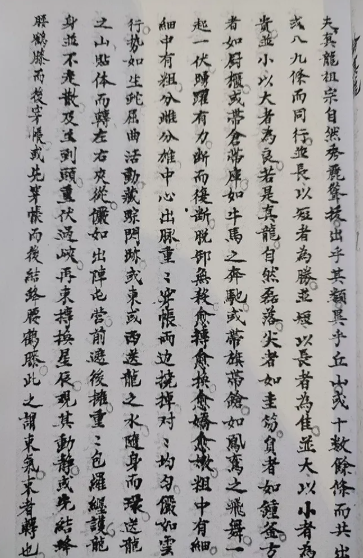 夫真龍祖宗自然秀麗聳拔出乎其類異乎丘山或十數餘條而共出
或八九條而同行並長以短者為勝並短以長者為佳並大以小者為
貴並小以大者為良若是真龍自然磊落尖者如圭笏負者如鐘釜方
者如厨櫃或帶倉帶庫如牛馬之奔馳或帶旗帶鎗如鳳鸞之飛舞一
起一伏踴躍有力断而復断脱卸無殺愈轉愈換愈嬌愈嫩粗中有細
細中有粗分雌分雄中心出脉重〻穿帳兩边撓棹对〻均匀儼如雲
行势如生蛇屈曲活動藏踪閃跡或東或西送龍之水随身而環送龍
之山貼体而轉左右夾從儼如出陣屯营前遮後擁重〻包羅纏護龍
身並不走散及至到頭重伏過峽再束擇換星辰現其動静或先結蜂
腰鶴膝而後穿帳或先穿帳而後結蜂腰鶴膝此之謂束氣束者轉也